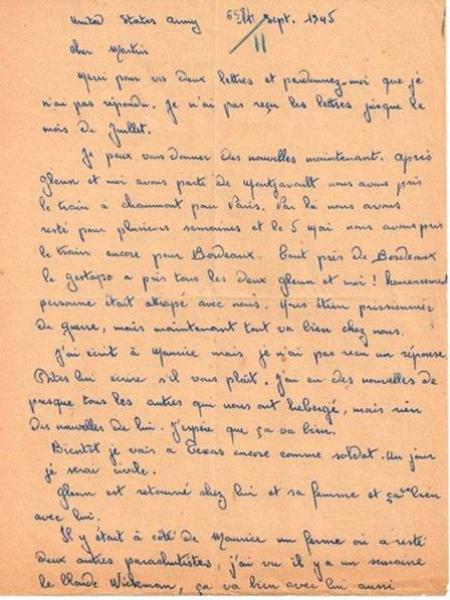 United States Army Sept. 1945
11
cher Martin
Merci pour vos deux lettres et pardonnez-moi que je
n'ai pas répondu. Je n'ai pas reçu les lettres jusque le
mois de Juillet.
Je peux vous donner des nouvelles maintenant. Après
Glenn et moi avons parti de Montjavoult nous avons pris
le train à Chaumont pour Paris. Par là nous avons
resté pour plusieurs semaines et le 5 mai nous avons pris
le train encore pour Bordeaux. Tout près de Bordeaux
le gestapo a pris tous les deux Glenn et moi! heureusement
personne était attrapé avec nous. Nous prisonnier
de guerre, mais maintenant tout va bien chez nous.
J'ai écrit à Maurice mais je n'ai pas reçu un réponse
lui écrire s'il vous plaît. J'ai eu des nouvelles de
presque tous les autres qui nous ont hebergé, mais rien
des nouvelles de lui. J'espère que ça va bien.
Bientôt je vais à Texas encore comme soldat. Un jour
je serai civile.
Glenn est retourné chez lui et sa femme et ça va bien
avec lui.
Il y était à côté de Maurice un ferme où a resté
deux autres parachutistes, j'ai vu il y a un semaine
le blonde Wickman, ça va bien avec lui aussi